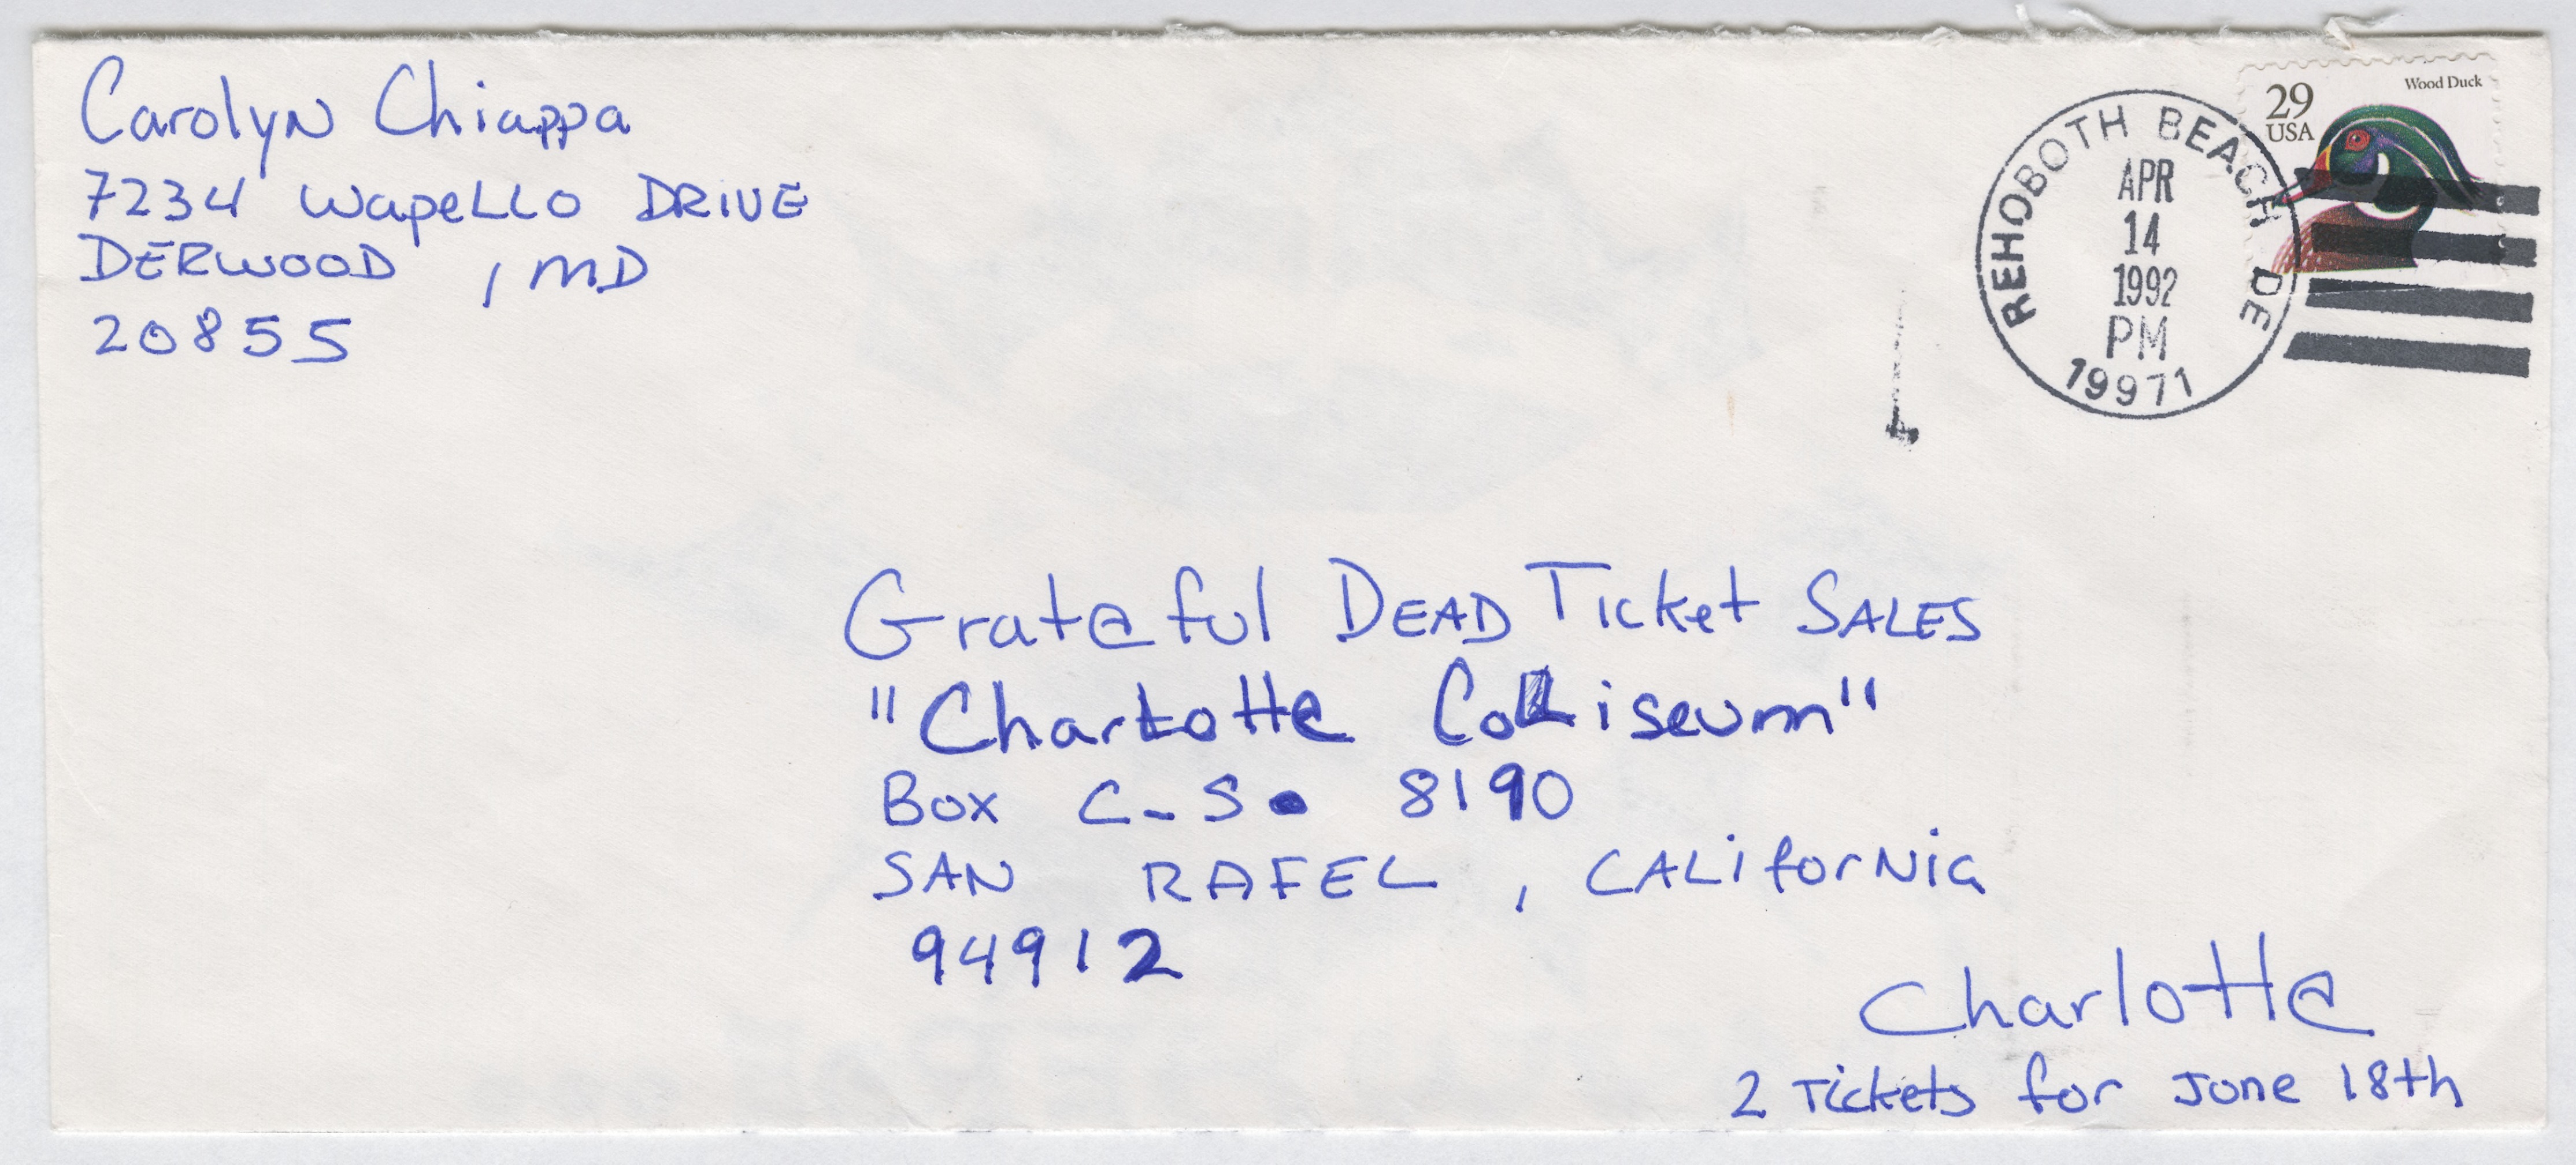 Carolyn Chiappa
7234 Wapello Drive
Derwood, MD
20855
Wood Duck
29
USA
REHOBOTH BEACH DE
APR
14
1992
PM
19971
Grateful Dead Ticket Sales
"Charlotte Coliseum"
Box C-S. 8190
San Rafel, California
94912
Charlotte
2 Tickets for June 18th